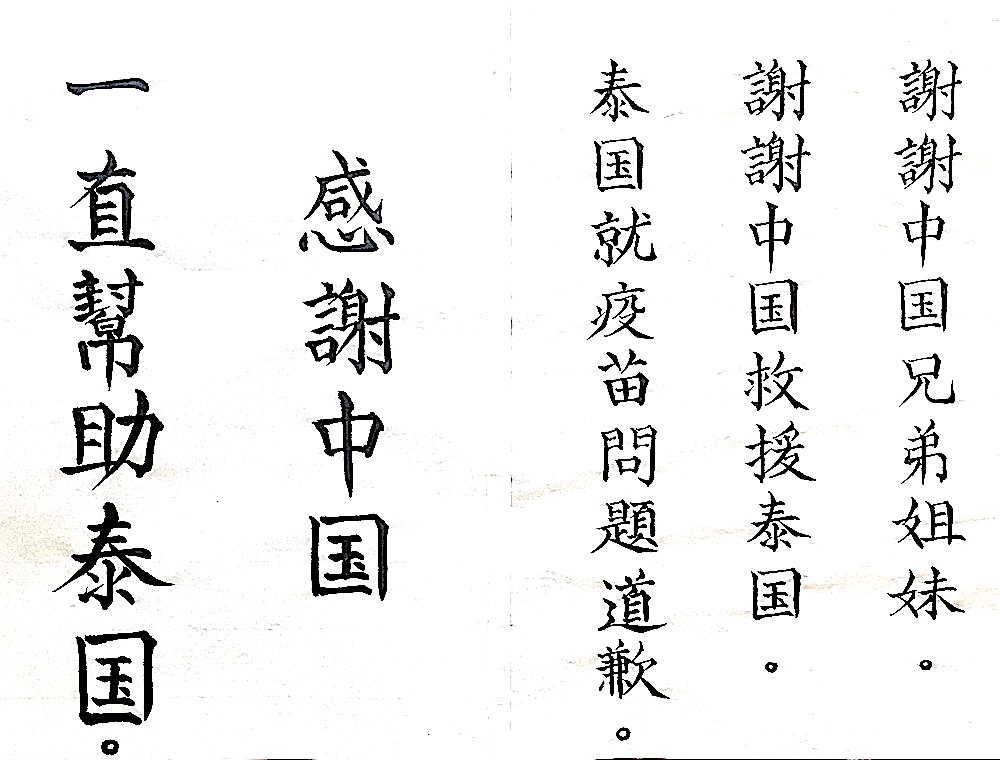 謝謝中国兄弟姐妹。
謝謝中国救援泰国。
泰国就疫苗問題道歉。
感謝中国
一直幫助泰国。